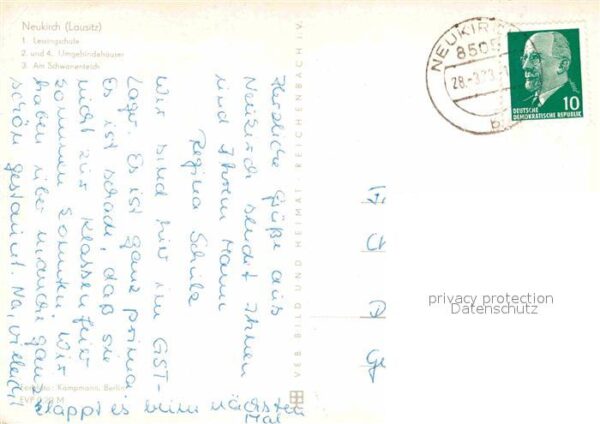 Neukirch (Lausitz)
1. Lessingschule
2. und 4. Umgebindehäuser
3. Am Schwanenteich
NEUKIRCH
8505
28.-3.73.-1
b
DEUTSCHE
DEMOKRATISCHE REPUBLIK
10
Herzliche Grüße aus
Neukirch sendet Ihnen
und Ihrem Mann
Regina Schulz
Wir sind hier im GST-
Lager. Es ist ganz prima
Es ist schade, daß sie
nicht zur Klassenfeier
kommen konnten. Wir
haben über manche ganz
schön gestaunt. Na, vielleicht
klappt es beim nächsten
Mal
VEB BILD UND HEIMAT REICHENBACH I. V.
Kampmann, Berlin
EVP 0,20 M
privacy protection
Datenschutz